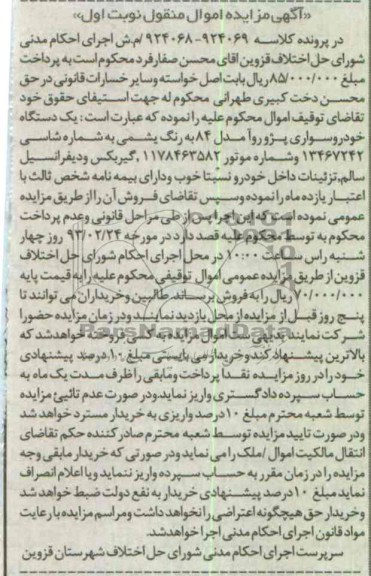 «آگهی مزایده اموال منقول نوبت اول»
در پرونده کلاسه ۹۲۴۰۶۹-۹۲۴۰۶۸ /م.ش اجرای احکام مدنی
شورای حل اختلاف قزوین اقای محسن صفارفرد محکوم است به پرداخت
مبلغ ۸۵/۰۰۰/۰۰۰ ریال بابت اصل خواسته وسایر خسارات قانونی در حق
محسن دخت کبیری طهرانی محکوم له جهت استیفای حقوق خود
تقاضای توقیف اموال محکوم علیه را نموده که عبارت است : یک دستگاه
خودروسواری پژو روآ مدل ۸۴ به رنگ یشمی به شماره شاسی
۱۳۴۶۷۲۴۲ وشماره موتور ۱۱۷۸۴۶۳۵۸۲ ,گیربکس ودیفرانسیل
سالم,تزئینات داخل خودرو نسبتا خوب ودارای بیمه نامه شخص ثالث با
اعتبار یازده ماه را نموده وسپس تقاضای فروش آن را از طریق مزایده
عمومی نموده است که این اجرا پس از طی مراحل قانونی وعدم پرداخت
محکوم به توسط محکوم علیه قصد دارد در مورخه ۹۳/۰۲/۲۴ روز چهار
شنبه راس ساعت ۱۰:۰۰ در محل اجرای احکام شورای حل اختلاف
قزوین از طریق مزایده عمومی اموال توقیفی محکوم علیه را به قیمت پایه
۷۰/۰۰۰/۰۰۰ ریال را به فروش برساند.طالبین وخریداران می توانند تا
پنج روز قبل از مزایده از محل بازدید نمایند ودر زمان مزایده حضورا
شرکت نمایند بدیهی ست اموال مزایده به کسی فروخته خواهدشد که
بالاترین پیشنهاد کند وخریدار می بایستی مبلغ ۱۰درصد پیشنهادی
خود را در روز مزایده نقدا پرداخت ومابقی را ظرف مدت یک ماه به
حساب سپرده دادگستری واریز نماید.ودر صورت عدم تائیئ مزایده
توسط شعبه محترم مبلغ ۱۰درصد واریزی به خریدار مسترد خواهد شد
ودر صورت تایید مزایده توسط شعبه محترم صادر کننده حکم تقاضای
انتقال مالکیت اموال /ملک را می نماید ودر صورتی که خریدار مابقی وجه
مزایده را در زمان مقرر به حساب سپرده واریز ننماید ویا اعلام انصراف
نماید مبلغ ۱۰درصد پیشنهادی خریدار به نفع دولت ضبط خواهد شد
وخریدار حق هیچگونه اعتراضی را نخواهد داشت ومراسم مزایده با رعایت
مواد قانون اجرای احکام مدنی اجرا خواهدشد.
سرپرست اجرای احکام مدنی شورای حل اختلاف شهرستان قزوین
ParsNamadData